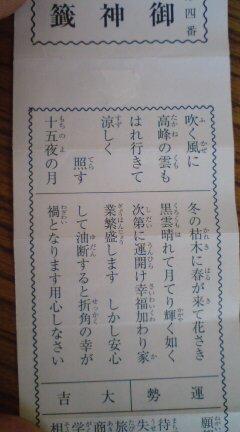 四番
御神籤
吹く風に
高峰の雲も
はれ行きて
涼しく
照す
十五夜の月
冬の枯木に春が来て花さき
黒雲晴れて月てり輝く如く
次第に運開け幸福加わり家
業繁盛します しかし安心
して油断すると折角の幸が
禍となります用心しなさい
運勢 大吉
願
待
失
旅
商
学
相